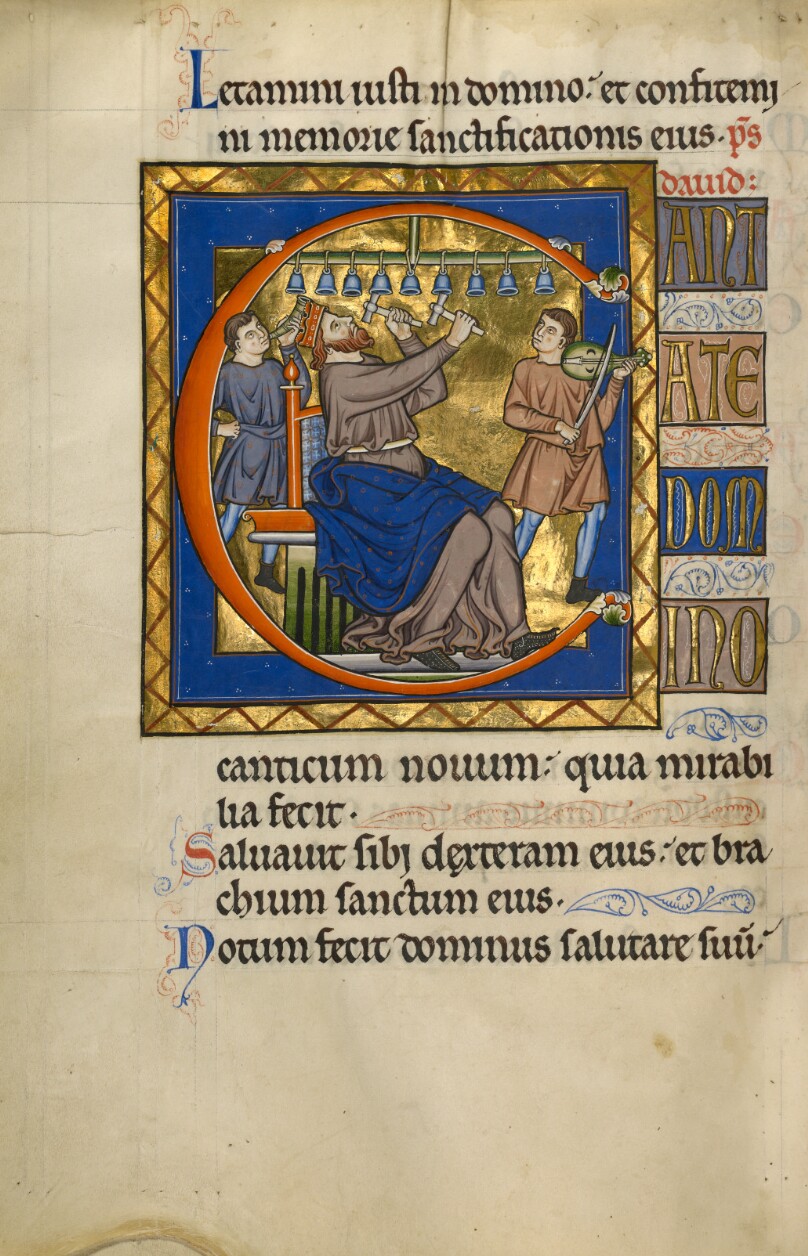 Letamini iusti in domino: et confitemj
in memorie sanctificationis eius. p̄s
dauid:
C
ANT
ATE
DOM
INO
canticum nouum: quia mirabi
lia fecit.
Saluauit sibj dexteram eius: et bra
chium sanctum eius.
Notum fecit dominus salutare suū: